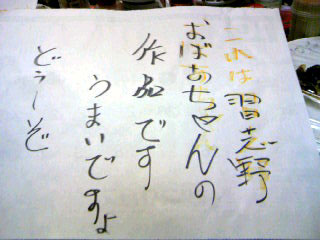 これは習志野
おばあちゃんの
作品です
うまいですよ
どぅーぞ